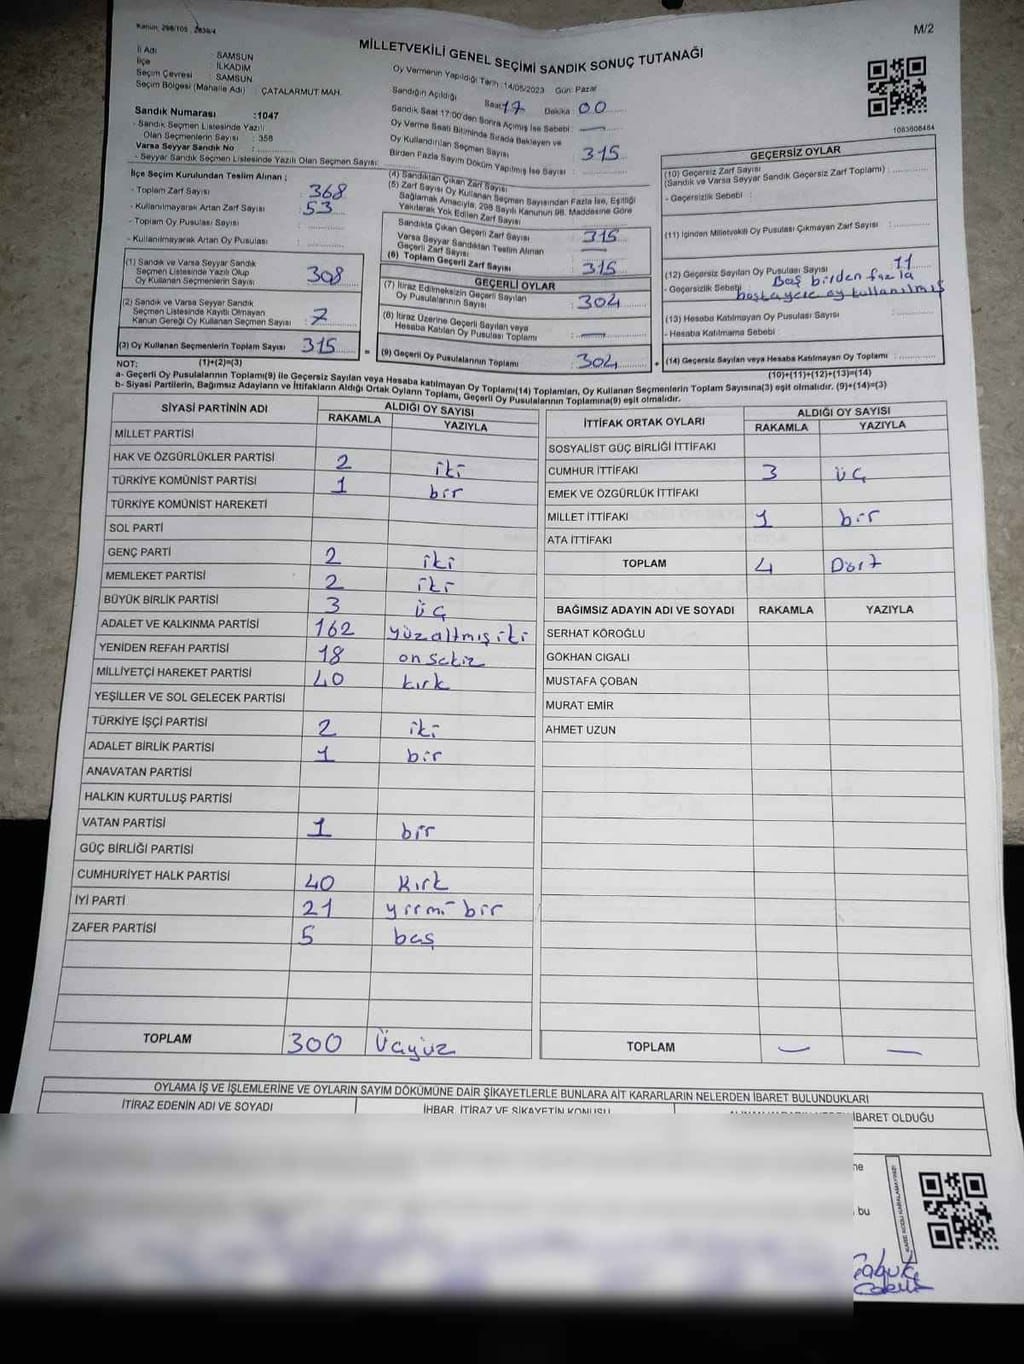 Kanun: 298/105 , 2839/4
M/2
MİLLETVEKİLİ GENEL SEÇİMİ SANDIK SONUÇ TUTANAĞI
İl Adı : SAMSUN
İlçe : İLKADIM
Seçim Çevresi : SAMSUN
Seçim Bölgesi (Mahalle Adı) : ÇATALARMUT MAH.
Sandık Numarası :1047
- Sandık Seçmen Listesinde Yazılı
Olan Seçmenlerin Sayısı : 358
Varsa Seyyar Sandık No :
- Seyyar Sandık Seçmen Listesinde Yazılı Olan Seçmen Sayısı:
Oy Vermenin Yapıldığı Tarih :14/05/2023 Gün: Pazar
Sandığın Açıldığı Saat 17 Dakika 00
Sandık Saat 17:00'den Sonra Açılmış İse Sebebi : —
Oy Verme Saati Bitiminde Sırada Bekleyen ve
Oy Kullandırılan Seçmen Sayısı : 315
Birden Fazla Sayım Döküm Yapılmış İse Sayısı :
1083608484
İlçe Seçim Kurulundan Teslim Alınan ;
- Toplam Zarf Sayısı : 368
- Kullanılmayarak Artan Zarf Sayısı : 53
- Toplam Oy Pusulası Sayısı :
- Kullanılmayarak Artan Oy Pusulası :
(1) Sandık ve Varsa Seyyar Sandık
Seçmen Listesinde Yazılı Olup
Oy Kullanan Seçmenlerin Sayısı : 308
(2) Sandık ve Varsa Seyyar Sandık
Seçmen Listesinde Kayıtlı Olmayan
Kanun Gereği Oy Kullanan Seçmen Sayısı : 7
(3) Oy Kullanan Seçmenlerin Toplam Sayısı : 315
(4) Sandıktan Çıkan Zarf Sayısı
(5) Zarf Sayısı Oy Kullanan Seçmen Sayısından Fazla İse, Eşitliği
Sağlamak Amacıyla, 298 Sayılı Kanunun 98. Maddesine Göre
Yakılarak Yok Edilen Zarf Sayısı
Sandıkta Çıkan Geçerli Zarf Sayısı : 315
Varsa Seyyar Sandıktan Teslim Alınan
Geçerli Zarf Sayısı : —
(6) Toplam Geçerli Zarf Sayısı : 315
GEÇERLİ OYLAR
(7) İtiraz Edilmeksizin Geçerli Sayılan
Oy Pusulalarının Sayısı : 304
(8) İtiraz Üzerine Geçerli Sayılan veya
Hesaba Katılan Oy Pusulası Toplamı : —
= (9) Geçerli Oy Pusulalarının Toplamı : 304
GEÇERSİZ OYLAR
(10) Geçersiz Zarf Sayısı
(Sandık ve Varsa Seyyar Sandık Geçersiz Zarf Toplamı) :
- Geçersizlik Sebebi :
(11) İçinden Milletvekili Oy Pusulası Çıkmayan Zarf Sayısı :
(12) Geçersiz Sayılan Oy Pusulası Sayısı : 11
- Geçersizlik Sebebi : Baş birden fazla
kullanılmış
(13) Hesaba Katılmayan Oy Pusulası Sayısı :
- Hesaba Katılmama Sebebi :
+ (14) Geçersiz Sayılan veya Hesaba Katılmayan Oy Toplamı :
NOT: (1)+(2)=(3)
(10)+(11)+(12)+(13)=(14)
a- Geçerli Oy Pusulalarının Toplamı(9) ile Geçersiz Sayılan veya Hesaba katılmayan Oy Toplamı(14) Toplamları, Oy Kullanan Seçmenlerin Toplam Sayısına(3) eşit olmalıdır. (9)+(14)=(3)
b- Siyasi Partilerin, Bağımsız Adayların ve İttifakların Aldığı Ortak Oyların Toplamı, Geçerli Oy Pusulalarının Toplamına(9) eşit olmalıdır.
SİYASİ PARTİNİN ADI ALDIĞI OY SAYISI
RAKAMLA YAZIYLA
MİLLET PARTİSİ
HAK VE ÖZGÜRLÜKLER PARTİSİ 2 iki
TÜRKİYE KOMÜNİST PARTİSİ 1 bir
TÜRKİYE KOMÜNİST HAREKETİ
SOL PARTİ
GENÇ PARTİ 2 iki
MEMLEKET PARTİSİ 2 iki
BÜYÜK BİRLİK PARTİSİ 3 üç
ADALET VE KALKINMA PARTİSİ 162 yüzaltmışiki
YENİDEN REFAH PARTİSİ 18 onsekiz
MİLLİYETÇİ HAREKET PARTİSİ 40 kırk
YEŞİLLER VE SOL GELECEK PARTİSİ
TÜRKİYE İŞÇİ PARTİSİ 2 iki
ADALET BİRLİK PARTİSİ 1 bir
ANAVATAN PARTİSİ
HALKIN KURTULUŞ PARTİSİ
VATAN PARTİSİ 1 bir
GÜÇ BİRLİĞİ PARTİSİ
CUMHURİYET HALK PARTİSİ 40 kırk
İYİ PARTİ 21 yirmi bir
ZAFER PARTİSİ 5 beş
TOPLAM 300 Üçyüz
İTTİFAK ORTAK OYLARI ALDIĞI OY SAYISI
RAKAMLA YAZIYLA
SOSYALİST GÜÇ BİRLİĞİ İTTİFAKI
CUMHUR İTTİFAKI 3 üç
EMEK VE ÖZGÜRLÜK İTTİFAKI
MİLLET İTTİFAKI 1 bir
ATA İTTİFAKI
TOPLAM 4 Dört
BAĞIMSIZ ADAYIN ADI VE SOYADI RAKAMLA YAZIYLA
SERHAT KÖROĞLU
GÖKHAN CIGALI
MUSTAFA ÇOBAN
MURAT EMİR
AHMET UZUN
TOPLAM — —
OYLAMA İŞ VE İŞLEMLERİNE VE OYLARIN SAYIM DÖKÜMÜNE DAİR ŞİKAYETLERLE BUNLARA AİT KARARLARIN NELERDEN İBARET BULUNDUKLARI
İTİRAZ EDENİN ADI VE SOYADI İHBAR, İTİRAZ VE ŞİKAYETİN KONUSU İBARET OLDUĞU
ne
bu
KARE KODU KARALAMAYINIZ!